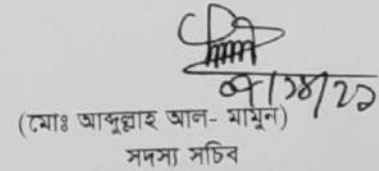 (মোঃ আব্দুল্লাহ আল- মামুন)
সদস্য সচিব